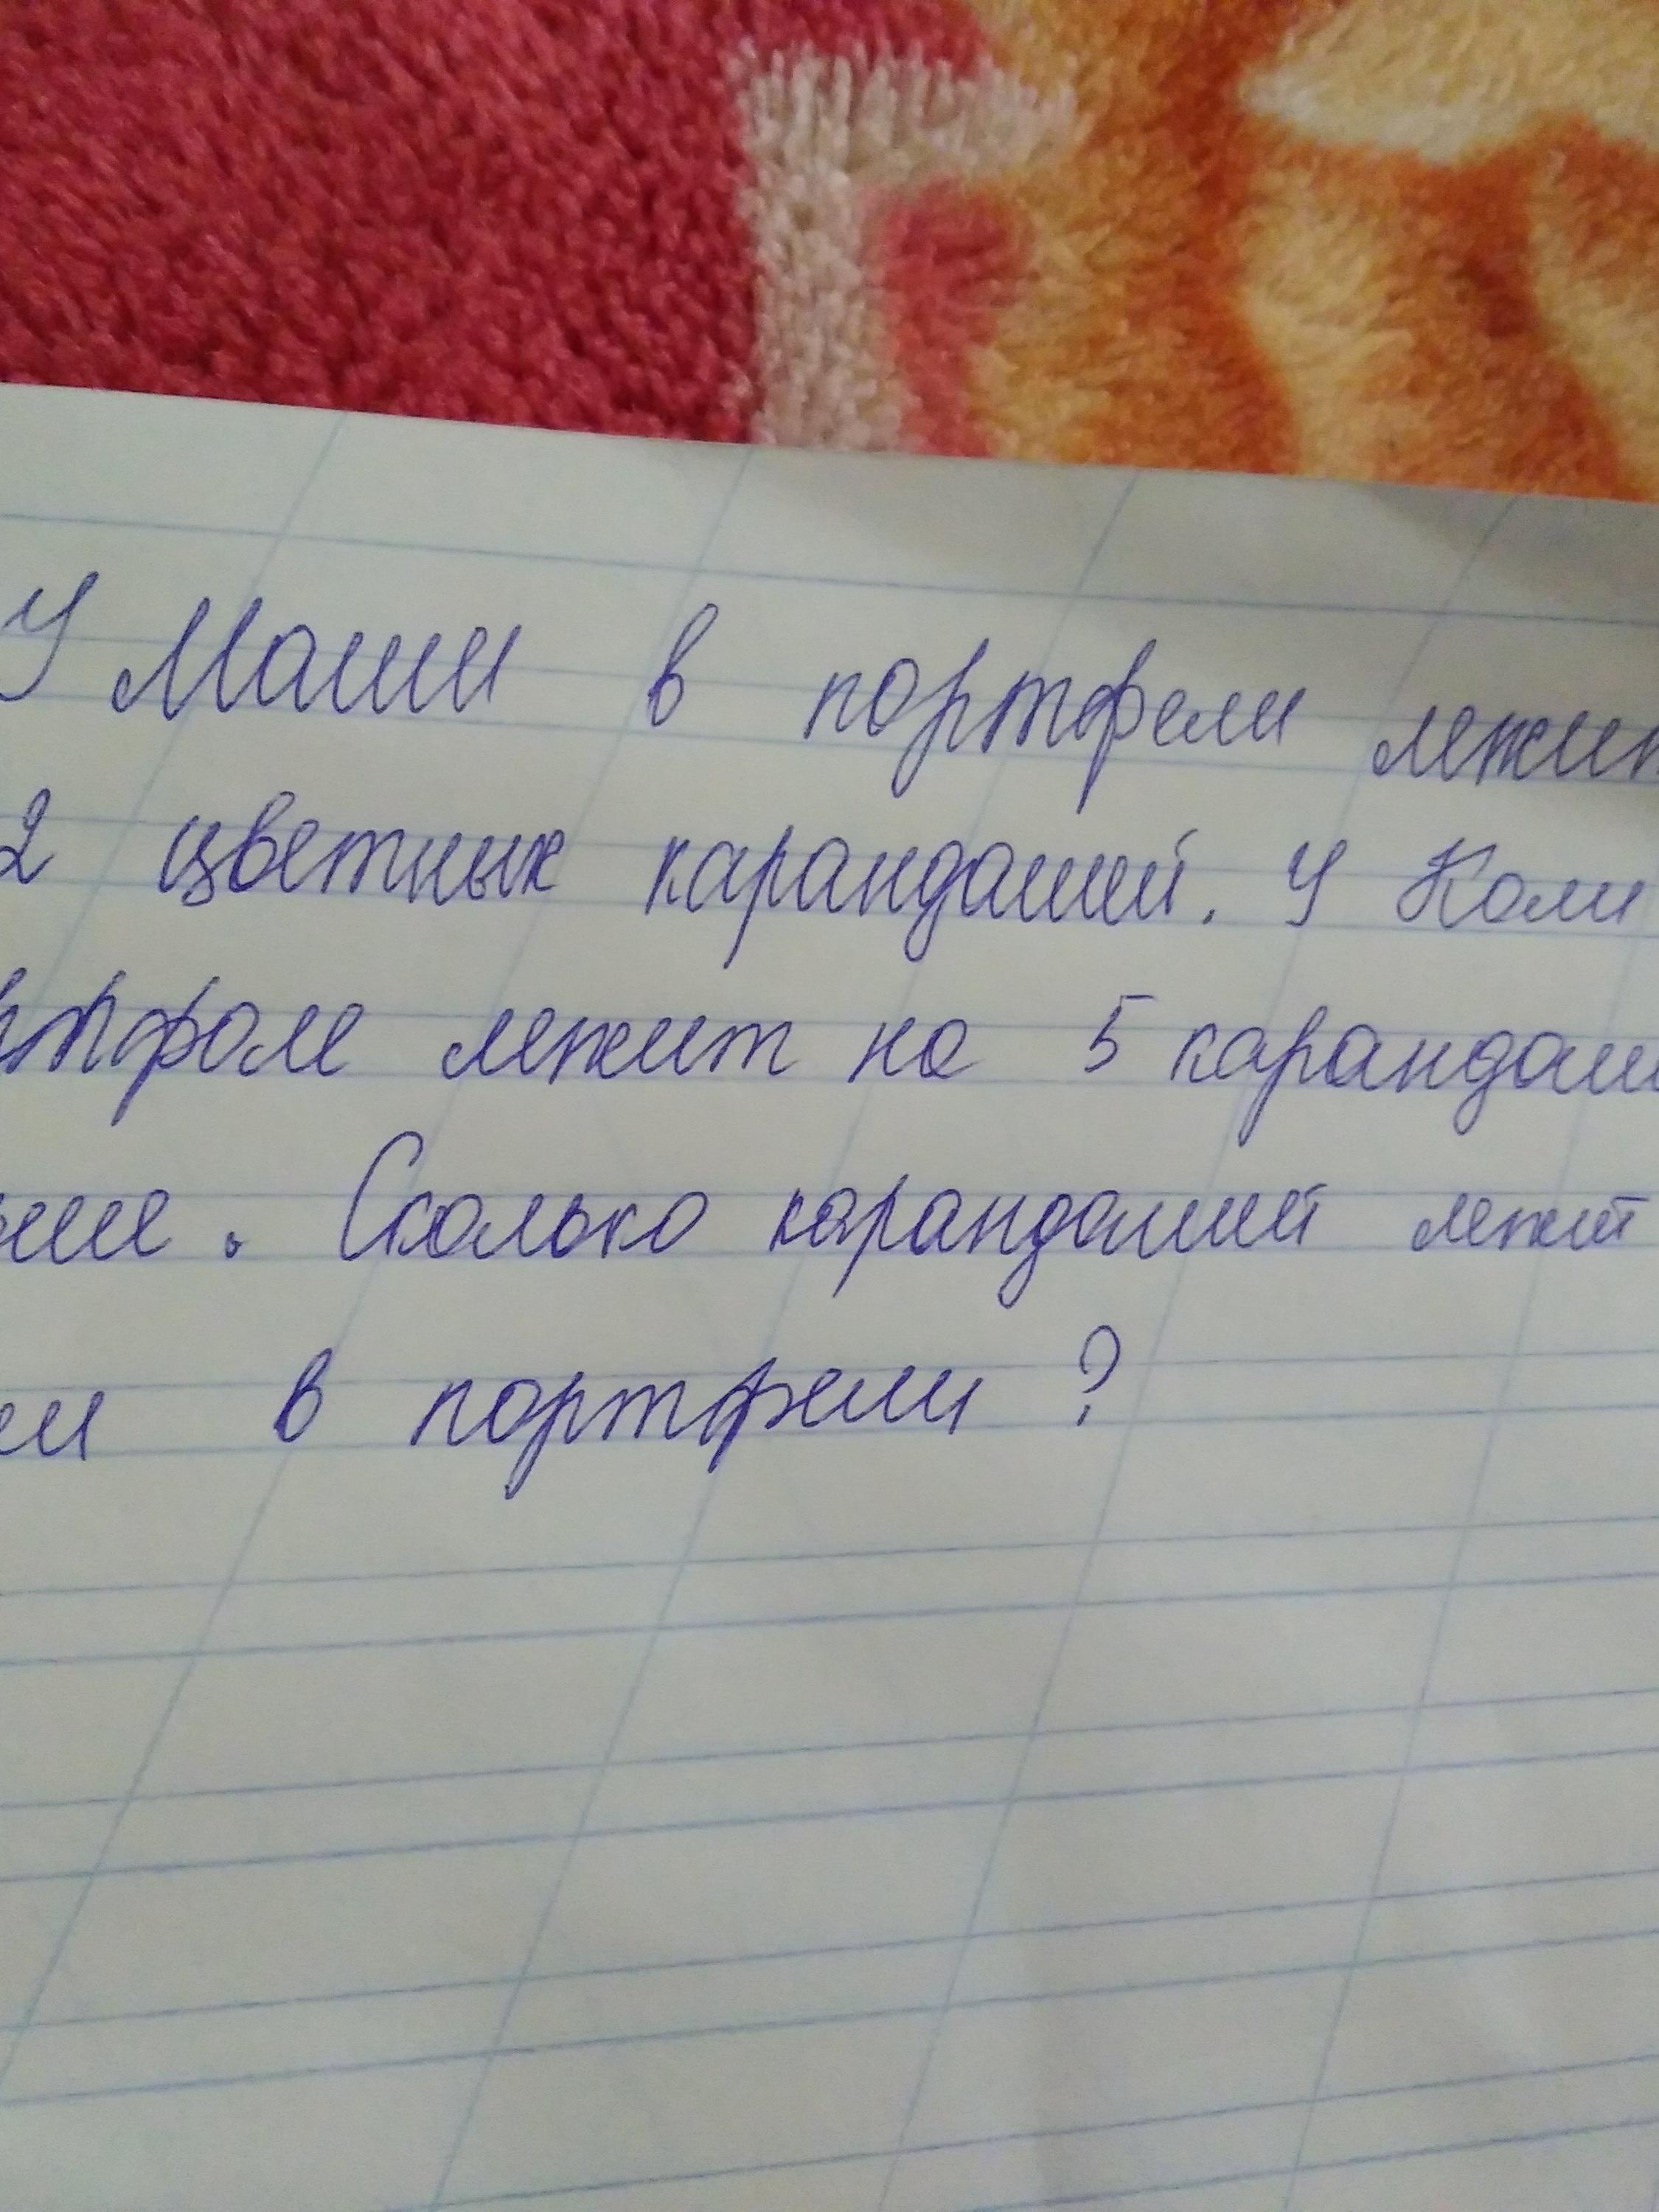 У Маши в портфели лежит
2 цветных карандашей. У Коли
ртфоле лежит на 5 карандаш
ьше. Сколько карандашей лежит
ли в портфели?